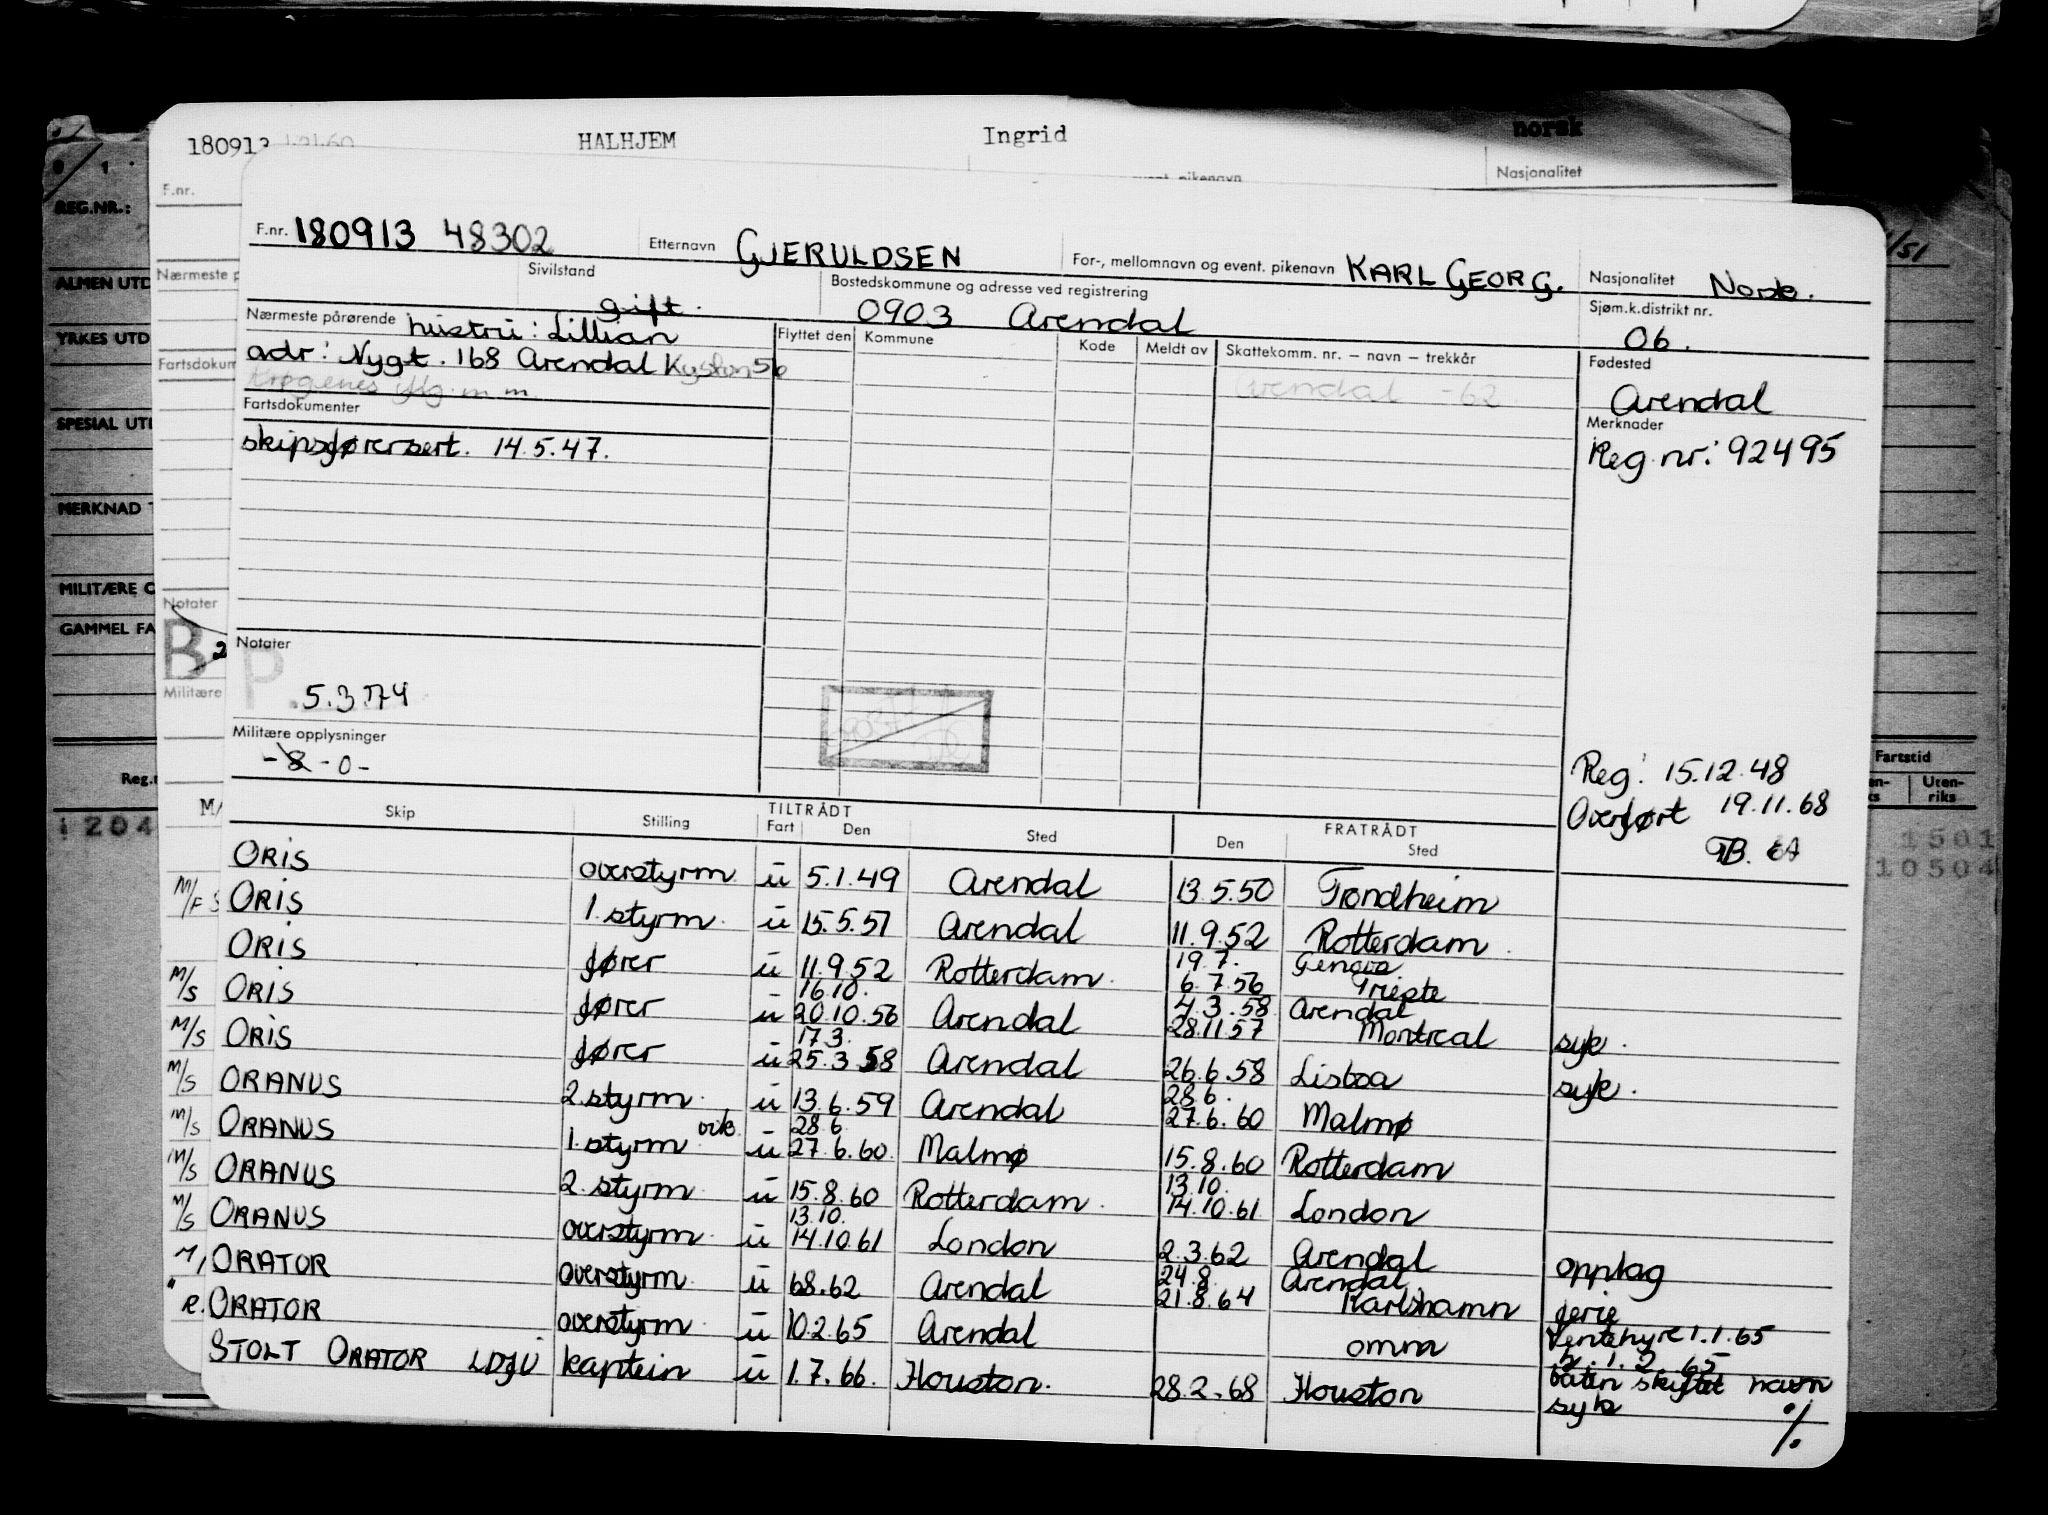 180913
HALHJEM
Ingrid
norsk
F.nr.
Nasjonalitet
REG.NR.:
ALMEN UTD
YRKES UTD
SPESIAL UTD
MERKNAD
MILITÆRE O
GAMMEL FA
Nærmeste p
Fartsdokum
Notater
B
Militære
Reg.n
F.nr. 180913 48302
Etternavn GJERULDSEN
For-, mellomnavn og event. pikenavn KARL GEORG.
Nasjonalitet Norsk.
Sivilstand gift.
Bostedskommune og adresse ved registrering
0903 Arendal
Sjøm.k.distrikt nr.
06.
Nærmeste pårørende hustru: Lillian
adr: Nygt. 168 Arendal
Flyttet den Kommune Kode Meldt av Skattekomm. nr. – navn – trekkår
Arendal -62
Fødested
Arendal
Fartsdokumenter
skipsførersert. 14.5.47.
Merknader
Reg.nr: 92495
Notater
P
5.3.74
Militære opplysninger
-8-0-
Reg: 15.12.48
Overført 19.11.68
Fartstid
Uten-
riks
1501
10504
1204
Skip Stilling TILTRÅDT FRATRÅDT
Fart Den Sted Den Sted
ORIS overstyrm u 5.1.49 Arendal 13.5.50 Trondheim
ORIS 1.styrm. u 15.5.51 Arendal 11.9.52 Rotterdam
19.7. Genova
ORIS fører u 11.9.52 Rotterdam. 6.7.56 Trieste
16.10. 4.3.58 Arendal
M/S ORIS fører u 20.10.56 Arendal 28.11.57 Montreal syk.
17.3.
M/S ORIS fører u 25.3.58 Arendal 26.6.58 Lisboa syk.
28.6.
M/S ORANUS 2.styrm. u 13.6.59 Arendal 27.6.60 Malmø
28.6
M/S ORANUS 1.styrm. vik. u 27.6.60. Malmø 15.8.60 Rotterdam
13.10.
M/S ORANUS 2.styrm. u 15.8.60 Rotterdam. 14.10.61 London
13.10.
M/S ORANUS overstyrm. u 14.10.61 London 2.3.62 Arendal opplag
24.8. Arendal
ORATOR overstyrm. u 6.8.62 Arendal 21.8.64 Karlshamn ferie
Ventehyre 1.1.65
ORATOR overstyrm. u 10.2.65 Arendal omm
båten skiftet navn
STOLT ORATOR kaptein u 1.7.66. Houston. 28.2.68 Houston syk